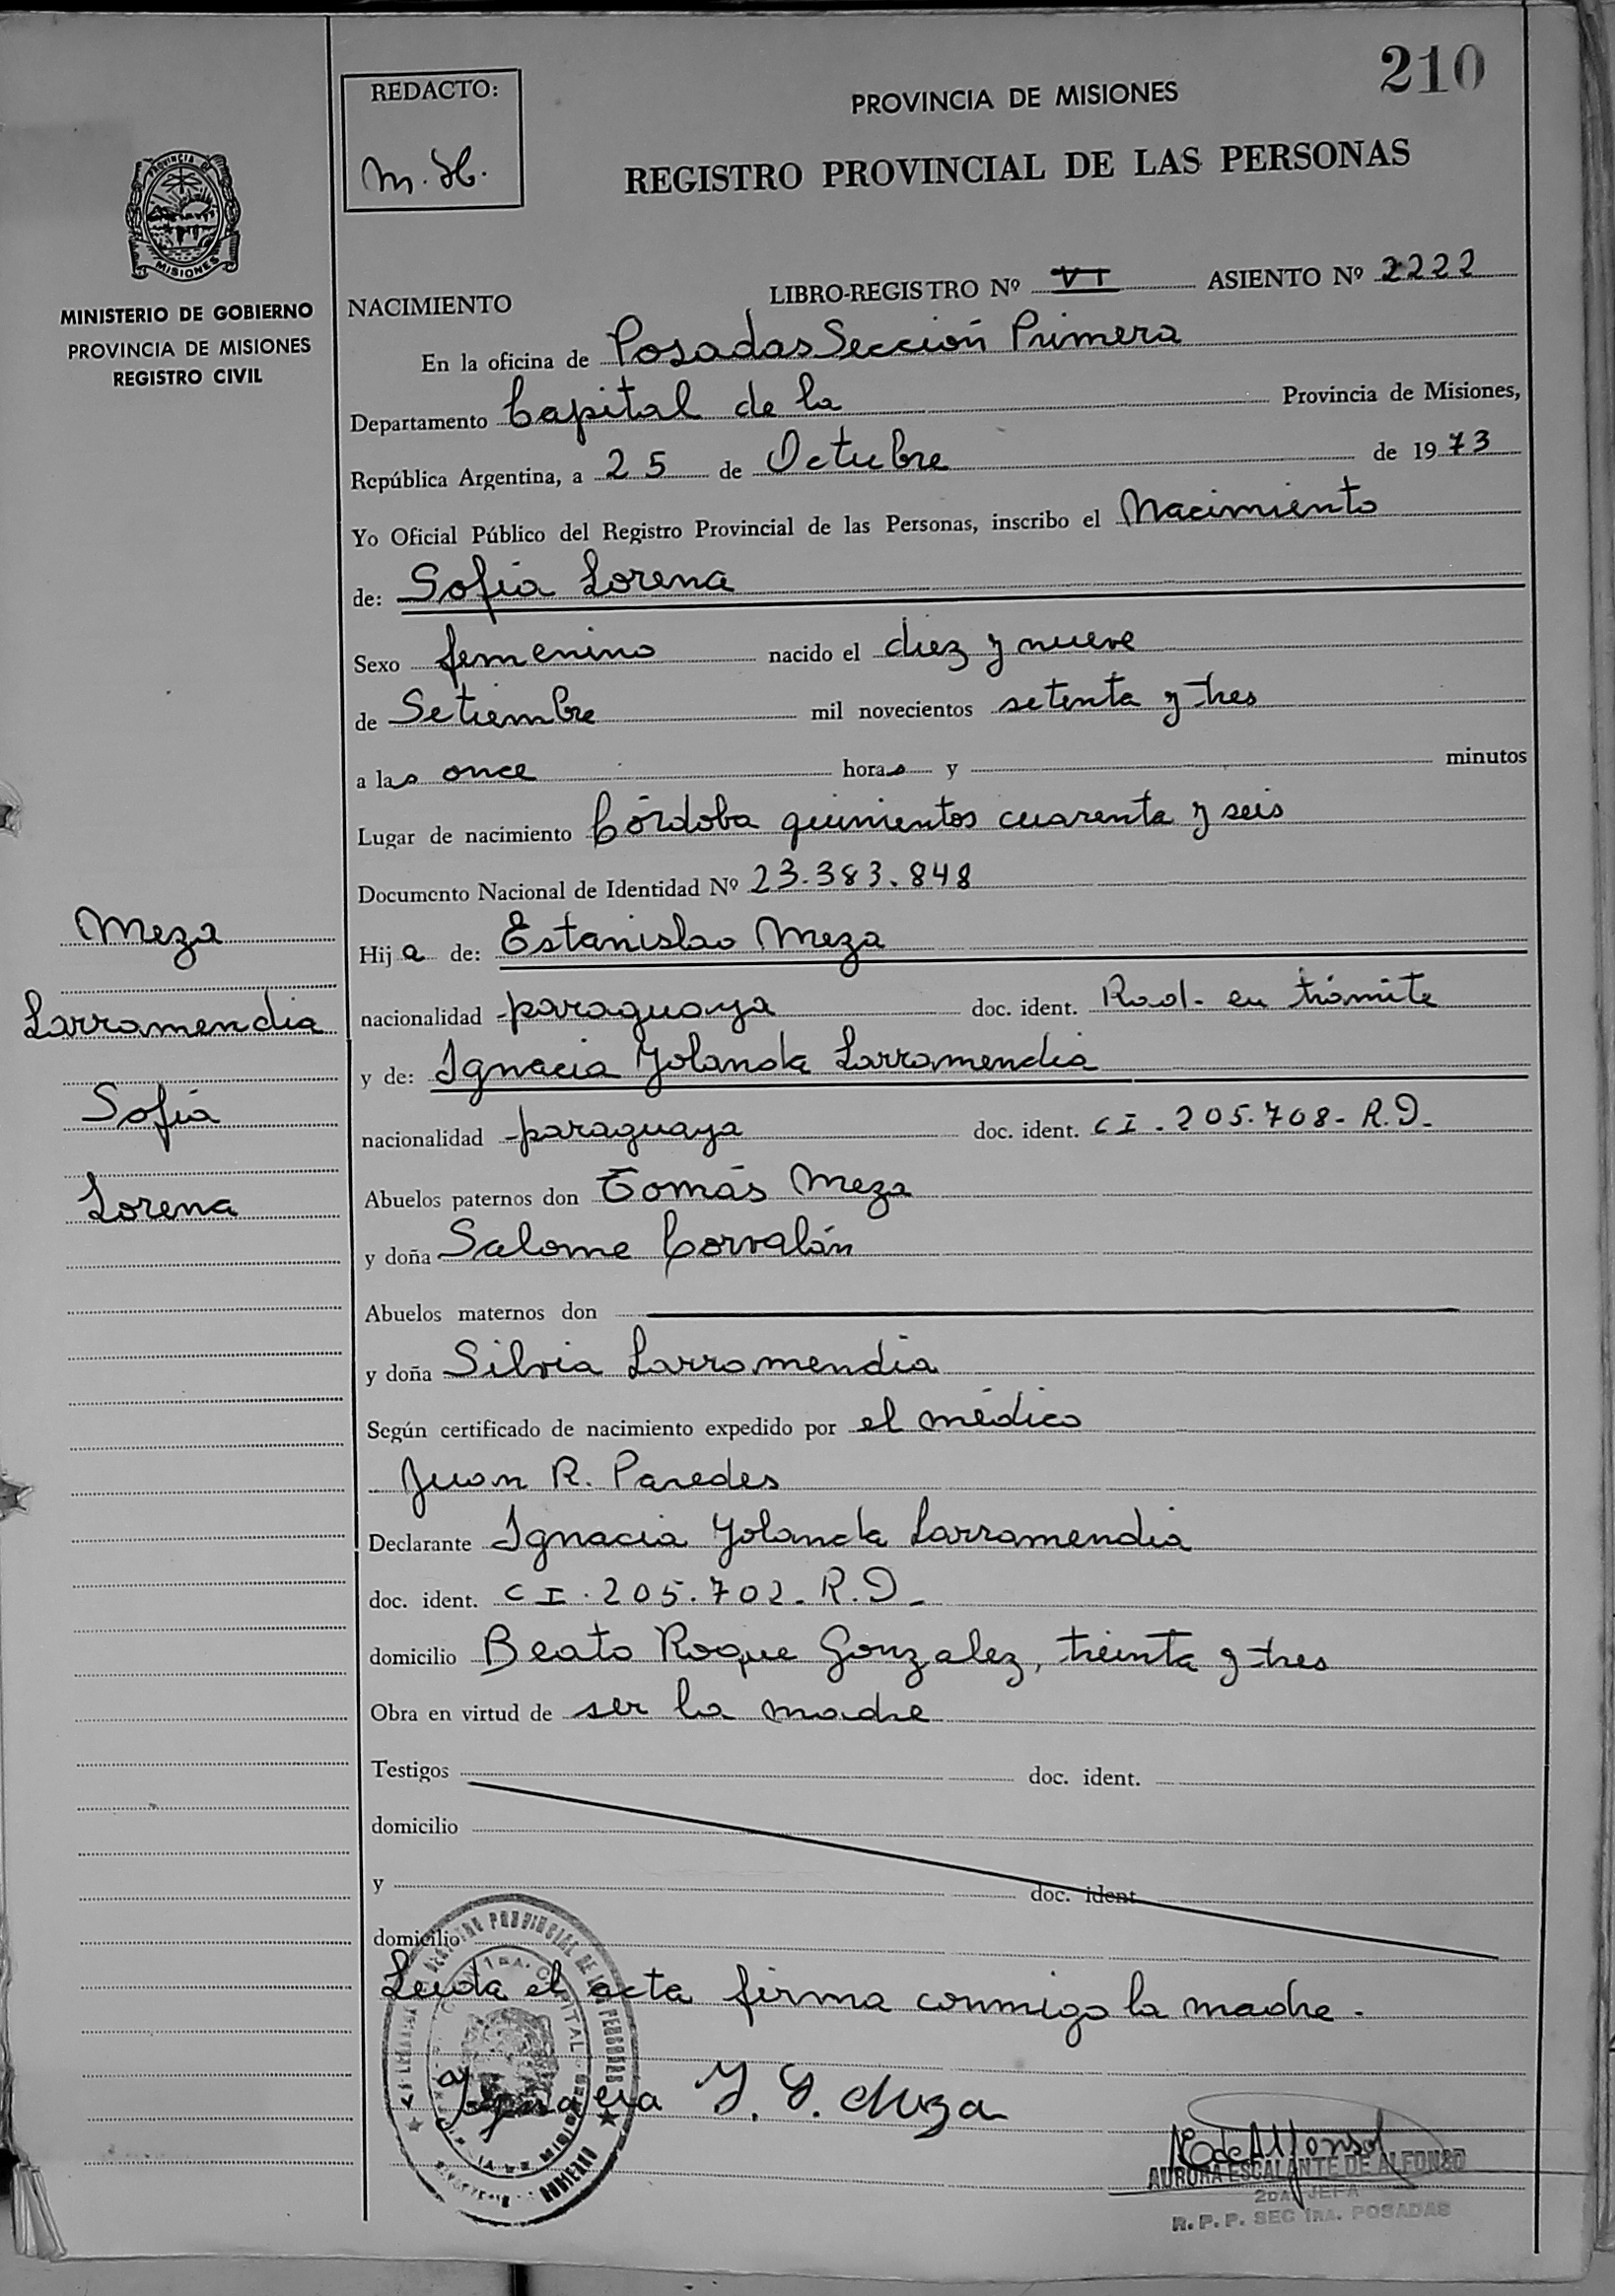 210
REDACTO:
M.H.
PROVINCIA DE MISIONES
REGISTRO PROVINCIAL DE LAS PERSONAS
PROVINCIA DE
MISIONES
MINISTERIO DE GOBIERNO
PROVINCIA DE MISIONES
REGISTRO CIVIL
NACIMIENTO LIBRO-REGISTRO Nº VI ASIENTO Nº 2222
En la oficina de Posadas Sección Primera
Departamento Capital de la Provincia de Misiones,
República Argentina, a 25 de Octubre de 1973
Yo Oficial Público del Registro Provincial de las Personas, inscribo el Nacimiento
de: Sofia Lorena
Sexo femenino nacido el diez y nueve
de Setiembre mil novecientos setenta y tres
a las once horas y minutos
Lugar de nacimiento Córdoba quinientos cuarenta y seis
Documento Nacional de Identidad Nº 23.383.848
Hija de: Estanislao Meza
nacionalidad paraguaya doc. ident. Rad. en trámite
y de: Ignacia Yolanda Larramendia
nacionalidad paraguaya doc. ident. CI. 205.708- R.D.
Abuelos paternos don Tomás Meza
y doña Salome Corvalán
Abuelos maternos don
y doña Silvia Larramendia
Según certificado de nacimiento expedido por el médico
Juan R. Paredes
Declarante Ignacia Yolanda Larramendia
doc. ident. CI. 205.702. R.D.
domicilio Beato Roque Gonzalez, treinta y tres
Obra en virtud de ser la madre
Testigos doc. ident.
domicilio
y doc. ident.
domicilio
Leida el acta firma conmigo la madre.
Meza
Larramendia
Sofia
Lorena
Y. Y. Meza
AURORA ESCALANTE DE ALFONSO
2DA. JEFA
R. P. P. SEC 1RA. POSADAS